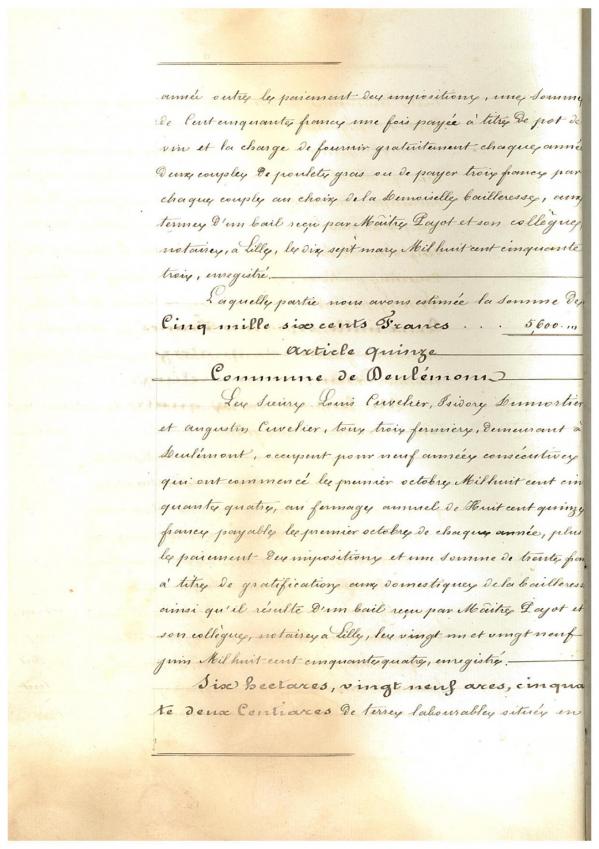 année outre le paiement des impositions, une somme
de Cent cinquante francs une fois payée à titre de pot de
vin et la charge de fournir gratuitement chaque année
deux couples de poulets gras ou de payer trois francs par
chaque couple au choix de la Demoiselle bailleresse, aux
termes d'un bail reçu par Maître Pajot et son collègue
notaires, à Lille, le dix sept mars Mil huit cent cinquante
trois, enregistré.
Laquelle partie nous avons estimée la somme de
Cinq mille six cents Francs . . . 5,600 "
Article Quinze
Commune de Deulémont
Les Sieurs Louis Cuvelier, Isidore Dumortier
et Augustin Cuvelier, tous trois fermiers, demeurant à
Deulémont, occupent pour neuf années consécutives
qui ont commencé le premier octobre Mil huit cent cin
quante quatre, au fermage annuel de Huit cent quinze
francs payable le premier octobre de chaque année, plus
le paiement des impositions et une somme de trente fran
à titre de gratification aux domestiques de la bailleress
ainsi qu'il résulte d'un bail reçu par Maître Pajot et
son collègue, notaires à Lille, les vingt un et vingt neuf
juin Mil huit cent cinquante quatre, enregistré.
Six hectares, vingt neuf ares, cinqua
te deux Centiares de terres labourables située en